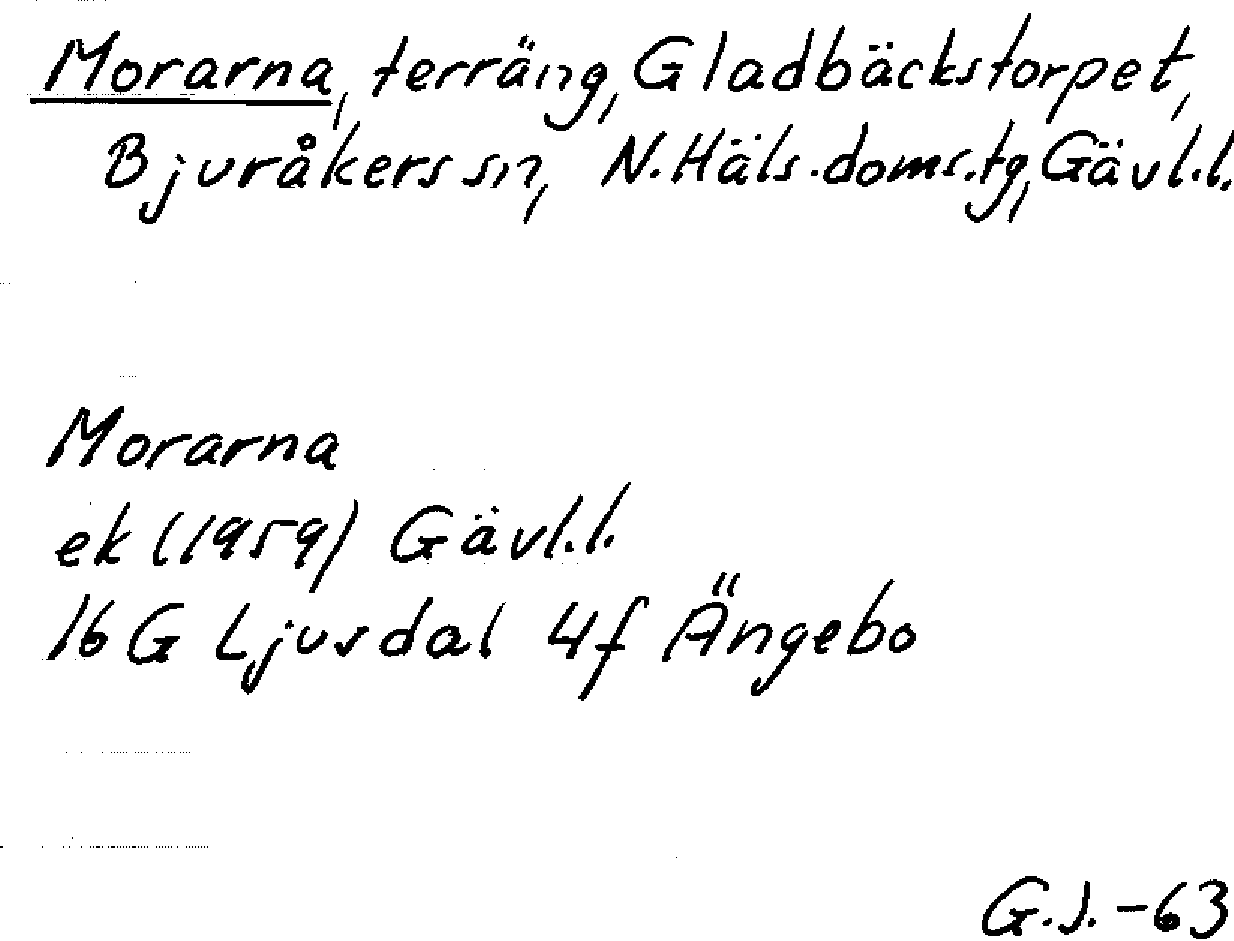 Morarna, terräng, Gladbäckstorpet,
Bjuråkers sn, N.Häls.doms.tg, Gävl.l.
Morarna
ek (1959) Gävl.l.
16 G Ljusdal 4f Ängebo
G.J.-63